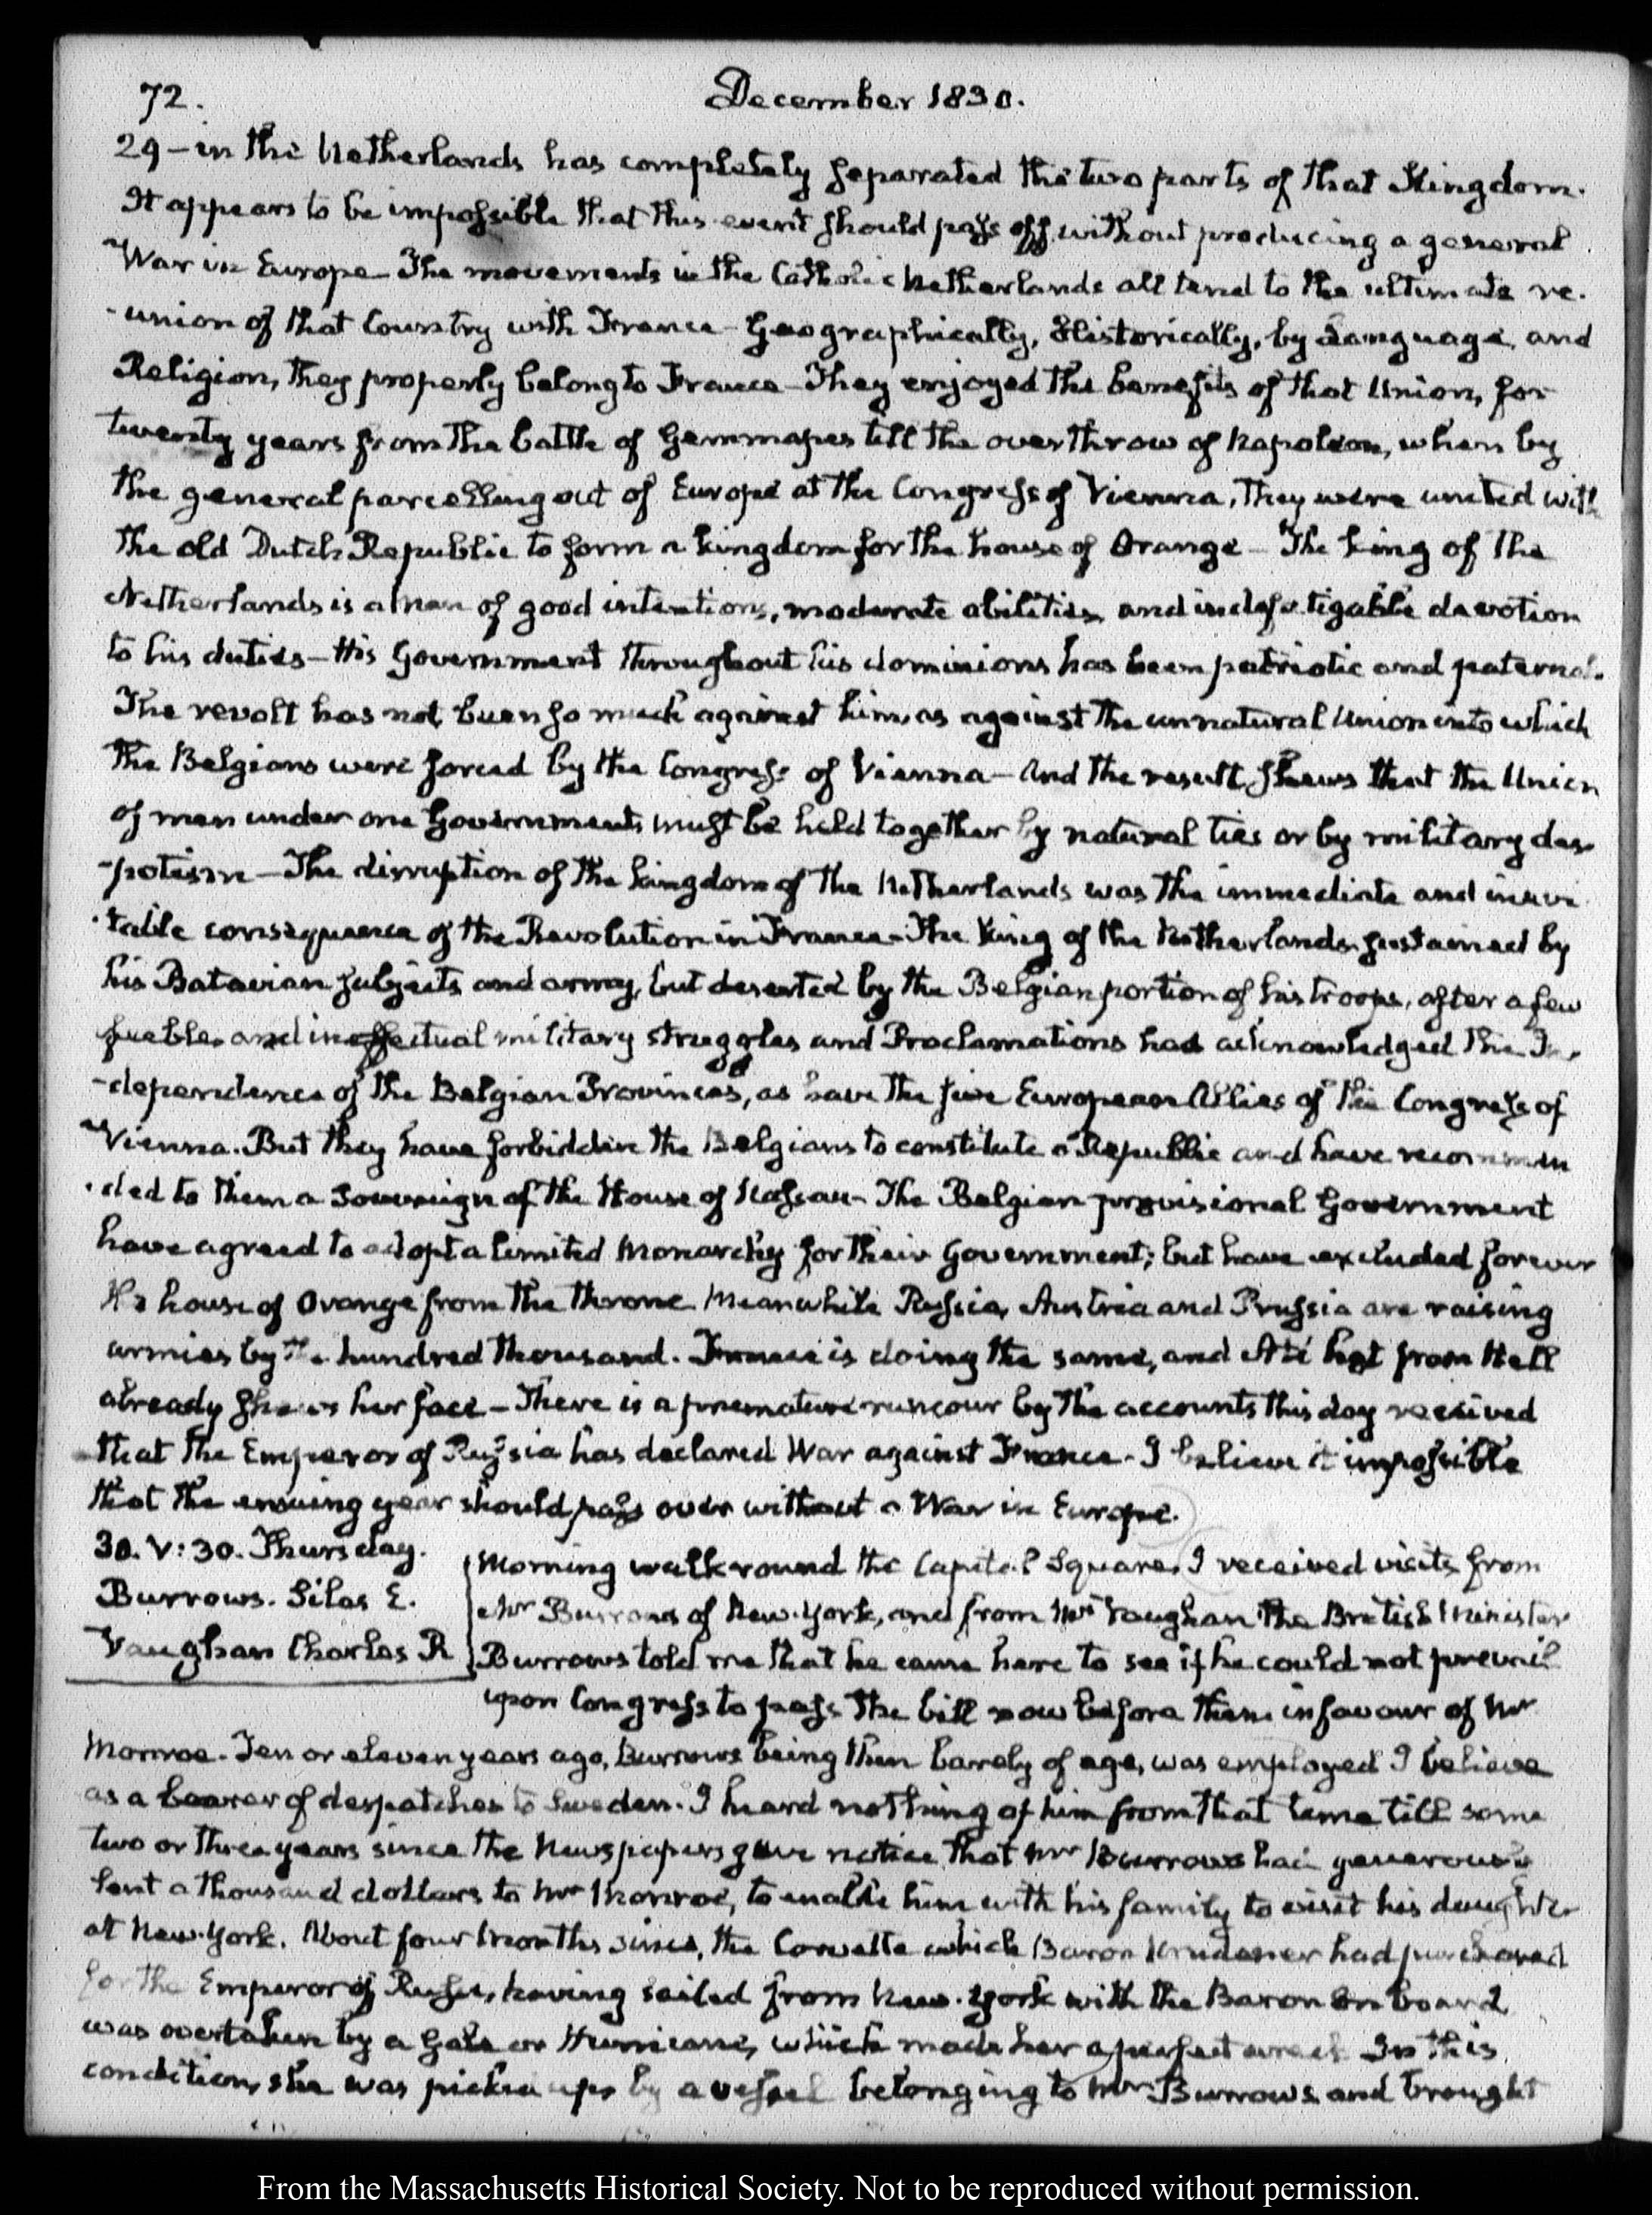 72.
December 1830.
29 – in the Netherlands has completely separated the two parts of that Kingdom.
It appears to be impossible that this event should pass off without producing a general
War in Europe – The movements in the Catholic Netherlands all tend to the ultimate re-
-union of that Country with France – Geographically, Historically, by Language, and
Religion, they properly belong to France – They enjoyed the benefits of that Union, for
twenty years from the battle of Gemmapes till the overthrow of Napoleon, when by
the general parcelling out of Europe at the Congress of Vienna, they were united with
the old Dutch Republic to form a kingdom for the house of Orange – The king of the
Netherlands is a man of good intentions, moderate abilities and indefatigable devotion
to his duties – His Government throughout his dominions has been patriotic and paternal.
The revolt has not been so much against him, as against the unnatural Union into which
the Belgians were forced by the Congress of Vienna – And the result shews that the Union
of men under one Government must be held together by natural ties or by military des-
-potism – The disruption of the kingdom of the Netherlands was the immediate and inevi-
-table consequence of the Revolution in France – The King of the Netherlands sustained by
his Batavian subjects and army, but deserted by the Belgian portion of his troops, after a few
feeble and ineffectual military struggles and Proclamations has acknowledged the In-
-dependence of the Belgian Provinces, as have the five European Allies of the Congress of
Vienna. But they have forbidden the Belgians to constitute a Republic and have recommen
-ded to them a Sovereign of the House of Nassau – The Belgian provisional Government
have agreed to adopt a limited Monarchy for their Government; but have excluded forever
the house of Orange from the throne Meanwhile Russia, Austria and Prussia are raising
armies by the hundred thousand. France is doing the same, and Até hot from Hell
already shews her face – There is a premature rumour by the accounts this day received
that the Emperor of Russia has declared War against France – I believe it impossible
that the ensuing year should pass over without a War in Europe.
30. V:30. Thursday.
Burrows. Silas E.
Vaughan Charles R
Morning walk round the Capitol Square. I received visits from
Mr Burrows of New-York, and from Mr Vaughan the British Minister
Burrows told me that he came here to see if he could not prevail
upon Congress to pass the bill now before them in favour of Mr
Monroe. Ten or eleven years ago, Burrows being then barely of age, was employed I believe
as a bearer of despatches to Sweden. I heard nothing of him from that time till some
two or three years since the Newspapers gave notice that Mr Burrows had generously
lent a thousand dollars to Mr Monroe, to enable him with his family to visit his daughter
at New-York. About four Months since, the Corvette which Baron Krudener had purchased
for the Emperor of Russia, having sailed from New-York with the Baron on board
was overtaken by a Gale or Hurricane, which made her a perfect wreck In this
condition, she was picked up by a vessel belonging to Mr Burrows and brought
From the Massachusetts Historical Society. Not to be reproduced without permission.